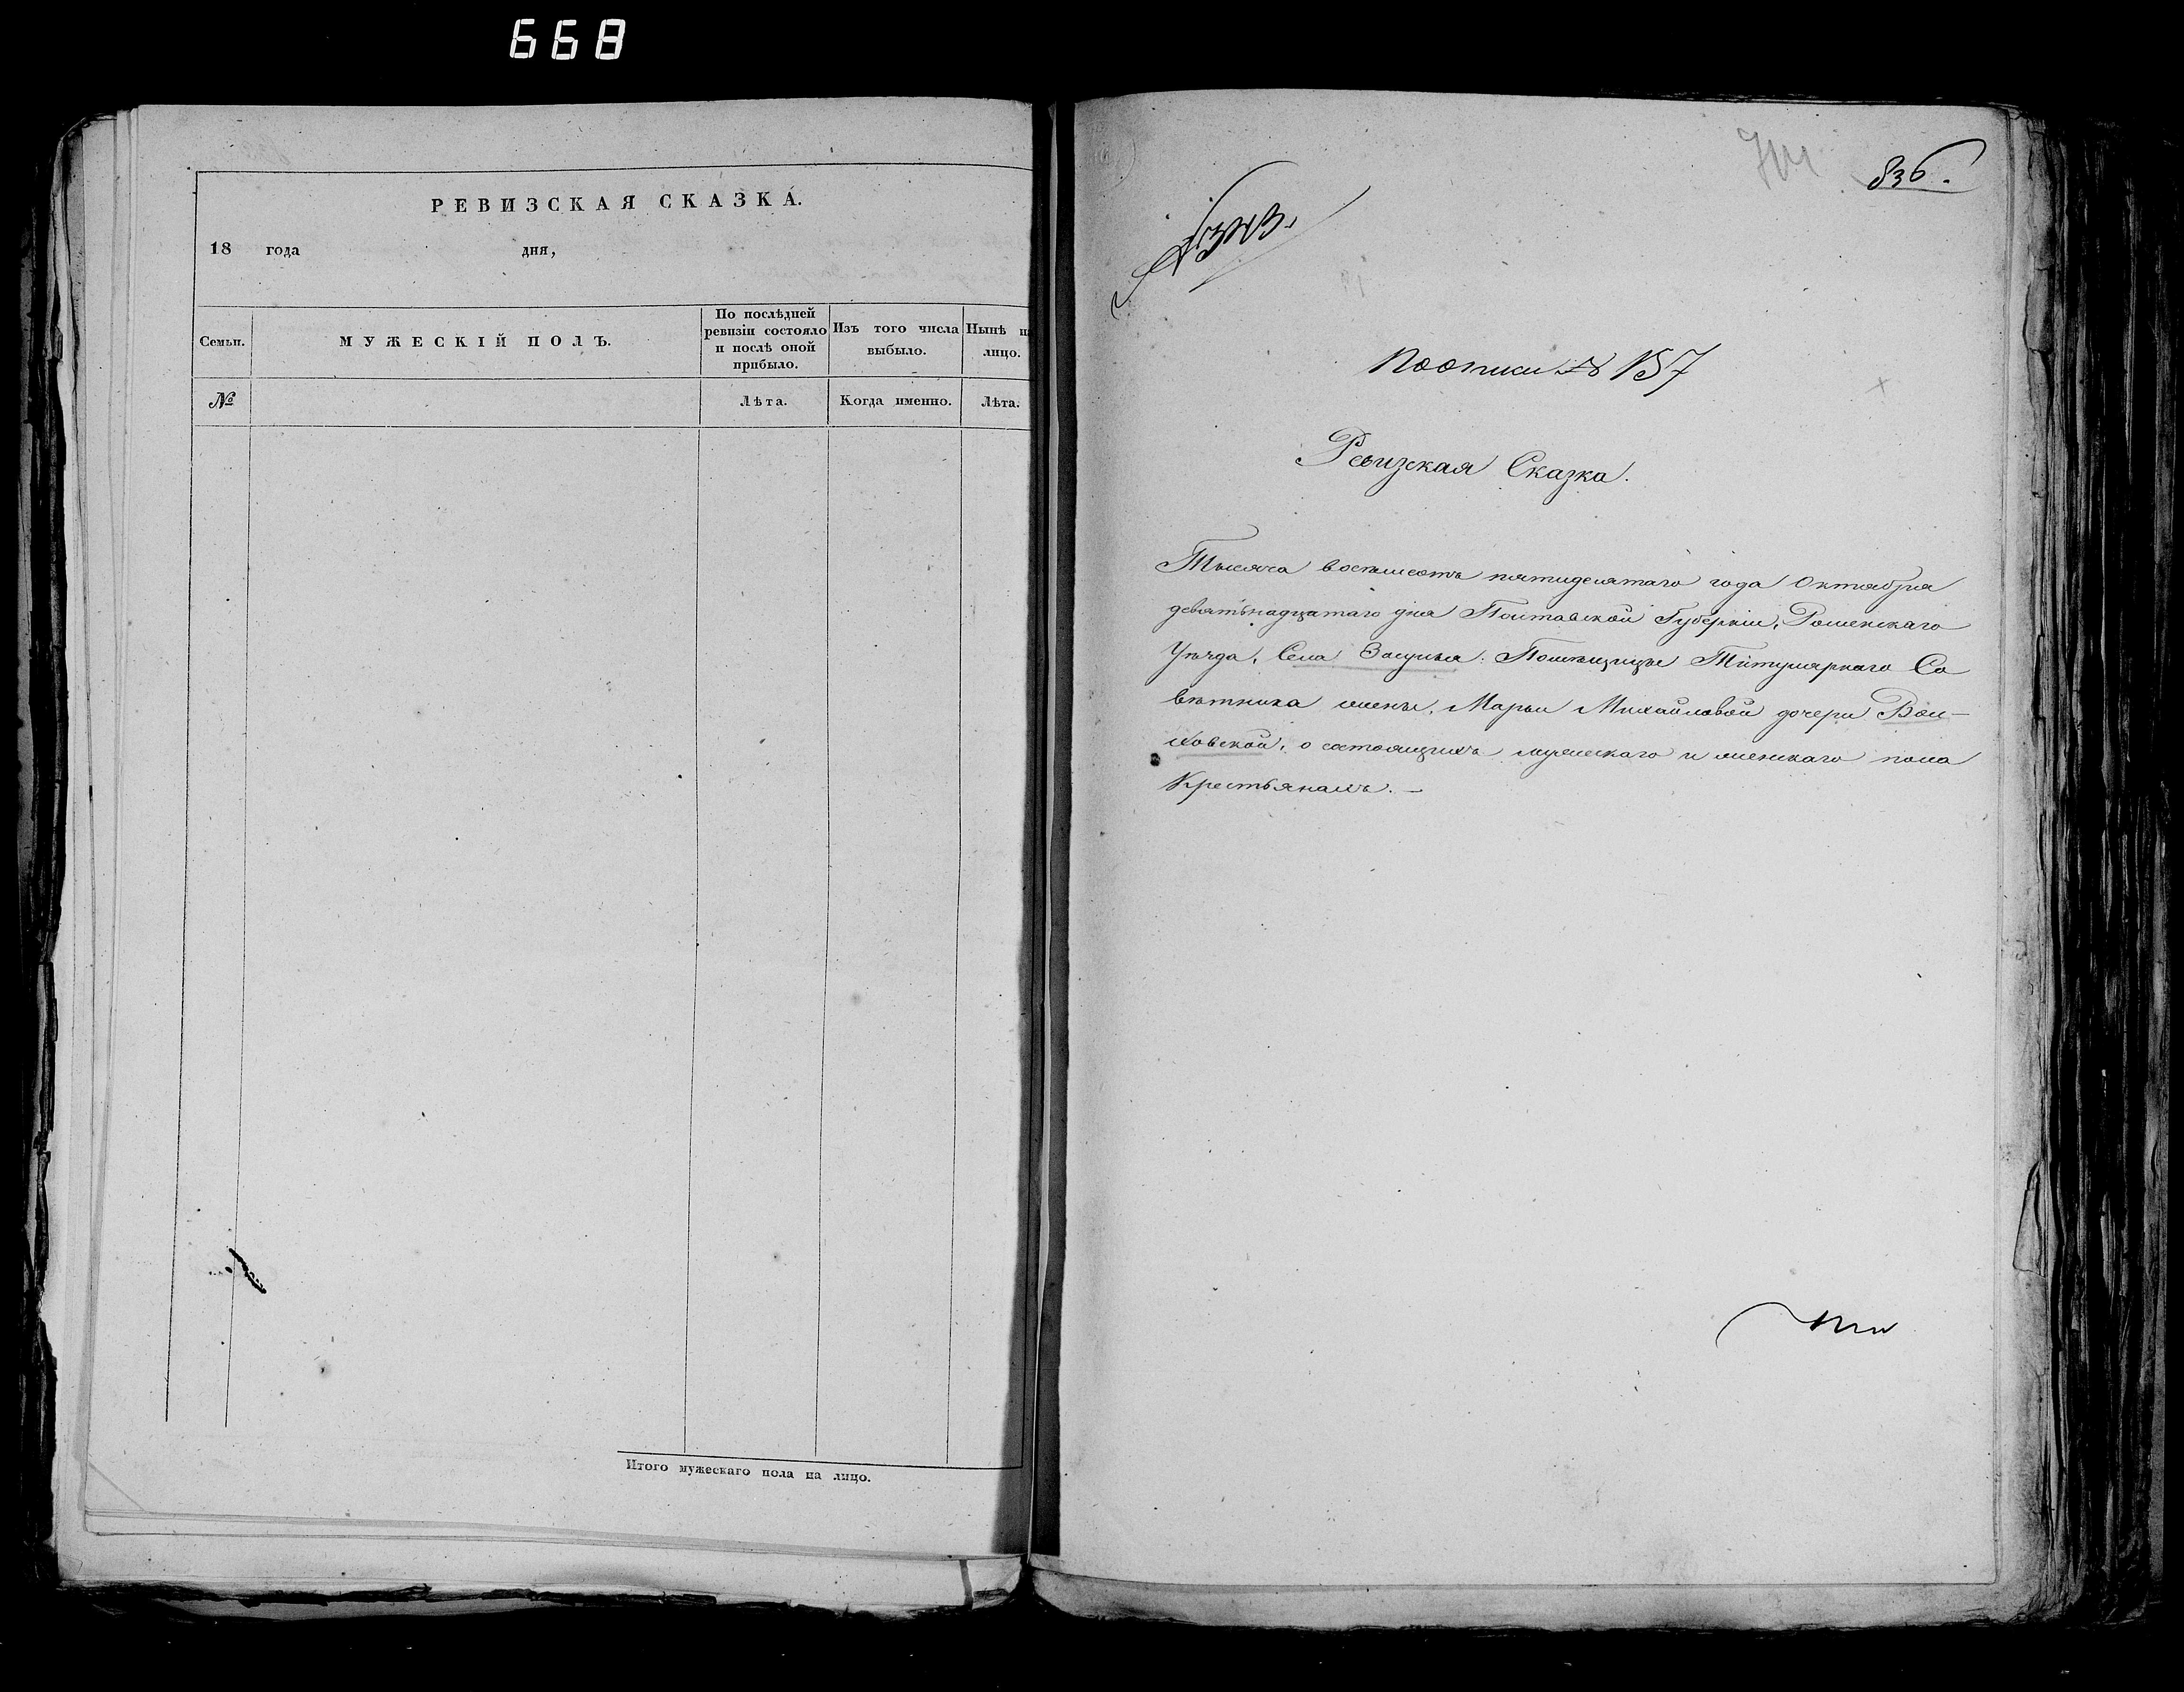 668
РЕВИЗСКАЯ СКАЗКА.
18 года дня,
Семьи.
МУЖЕСКІЙ ПОЛЪ.
По послѣдней ревизіи состояло и послѣ оной прибыло.
Изъ того числа выбыло.
Нынѣ на лицо.
№
Лѣта.
Когда именно.
Лѣта.
Итого мужескаго пола на лицо.
836.
По описи № 157
Ревизская Сказка.
Тысяча восемьсотъ пятидесятаго года Октября
девятьнадцатаго дня Полтавской Губерніи, Роменскаго
Уѣзда, Села Засулья: Помѣщицы Титулярнаго Со
вѣтника жены, Марьи Михайловой дочери Вол-
ховской, о состоящихъ мужескаго и женскаго пола
Крестьянахъ. —